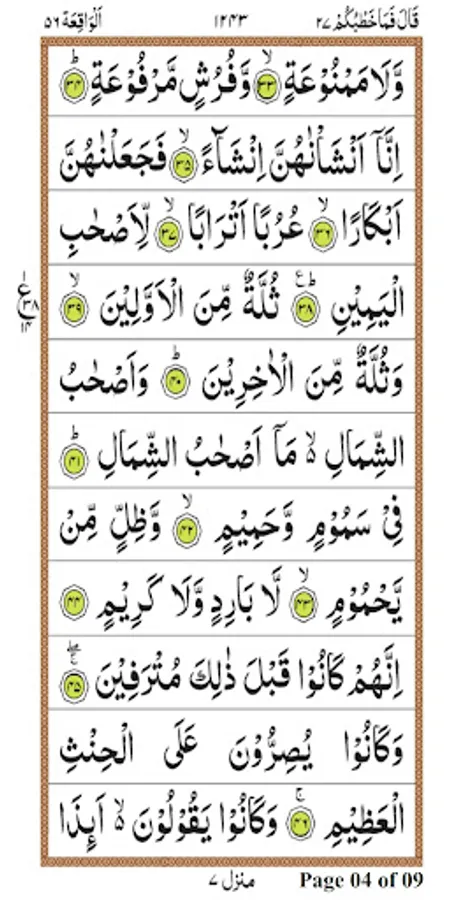 قَالَ فَمَا خَطْبُكُمْ ٢٧ ١٢٤٣ اَلْوَاقِعَة ٥٦
وَّلَا مَمْنُوْعَةٍ ۙ‏﴿٣٣﴾ وَّفُرُشٍ مَّرْفُوْعَةٍ ؕ‏﴿٣٤﴾
اِنَّاۤ اَنْشَاْنٰهُنَّ اِنْشَآءً ۙ‏﴿٣٥﴾ فَجَعَلْنٰهُنَّ
اَبْكَارًا ۙ‏﴿٣٦﴾ عُرُبًا اَتْرَابًا ۙ‏﴿٣٧﴾ لِّاَصْحٰبِ
الْيَمِيْنِ ؕ ع‏﴿٣٨﴾ ثُلَّةٌ مِّنَ الْاَوَّلِيْنَ ۙ‏﴿٣٩﴾
ع ٣٨ ١٤
وَثُلَّةٌ مِّنَ الْاٰخِرِيْنَ ؕ‏﴿٤٠﴾ وَاَصْحٰبُ
الشِّمَالِ ۙ۬ مَاۤ اَصْحٰبُ الشِّمَالِ ؕ‏﴿٤١﴾
فِيْ سَمُوْمٍ وَّحَمِيْمٍ ۙ‏﴿٤٢﴾ وَّظِلٍّ مِّنْ
يَّحْمُوْمٍ ۙ‏﴿٤٣﴾ لَّا بَارِدٍ وَّلَا كَرِيْمٍ ‏﴿٤٤﴾
اِنَّهُمْ كَانُوْا قَبْلَ ذٰلِكَ مُتْرَفِيْنَ ۚۖ‏﴿٤٥﴾
وَكَانُوْا يُصِرُّوْنَ عَلَى الْحِنْثِ
الْعَظِيْمِ ۚ‏﴿٤٦﴾ وَكَانُوْا يَقُوْلُوْنَ ۙ۬ اَىِٕذَا
منزل ٧ Page 04 of 09